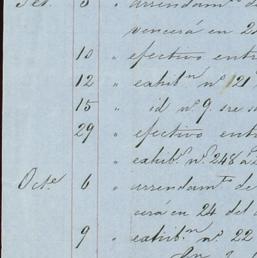 Set. 3 " arrendam.to d
vencerá en 2
10 " efectivo entr
12 " exhib.n n.o 121
15 " id n.o 9 sre s
29 " efectivo entr
exhib.n n.o 248 a
Oct.e 6 " arrendam.to de
cera en 24 del
9 " exhib.n n.o 22